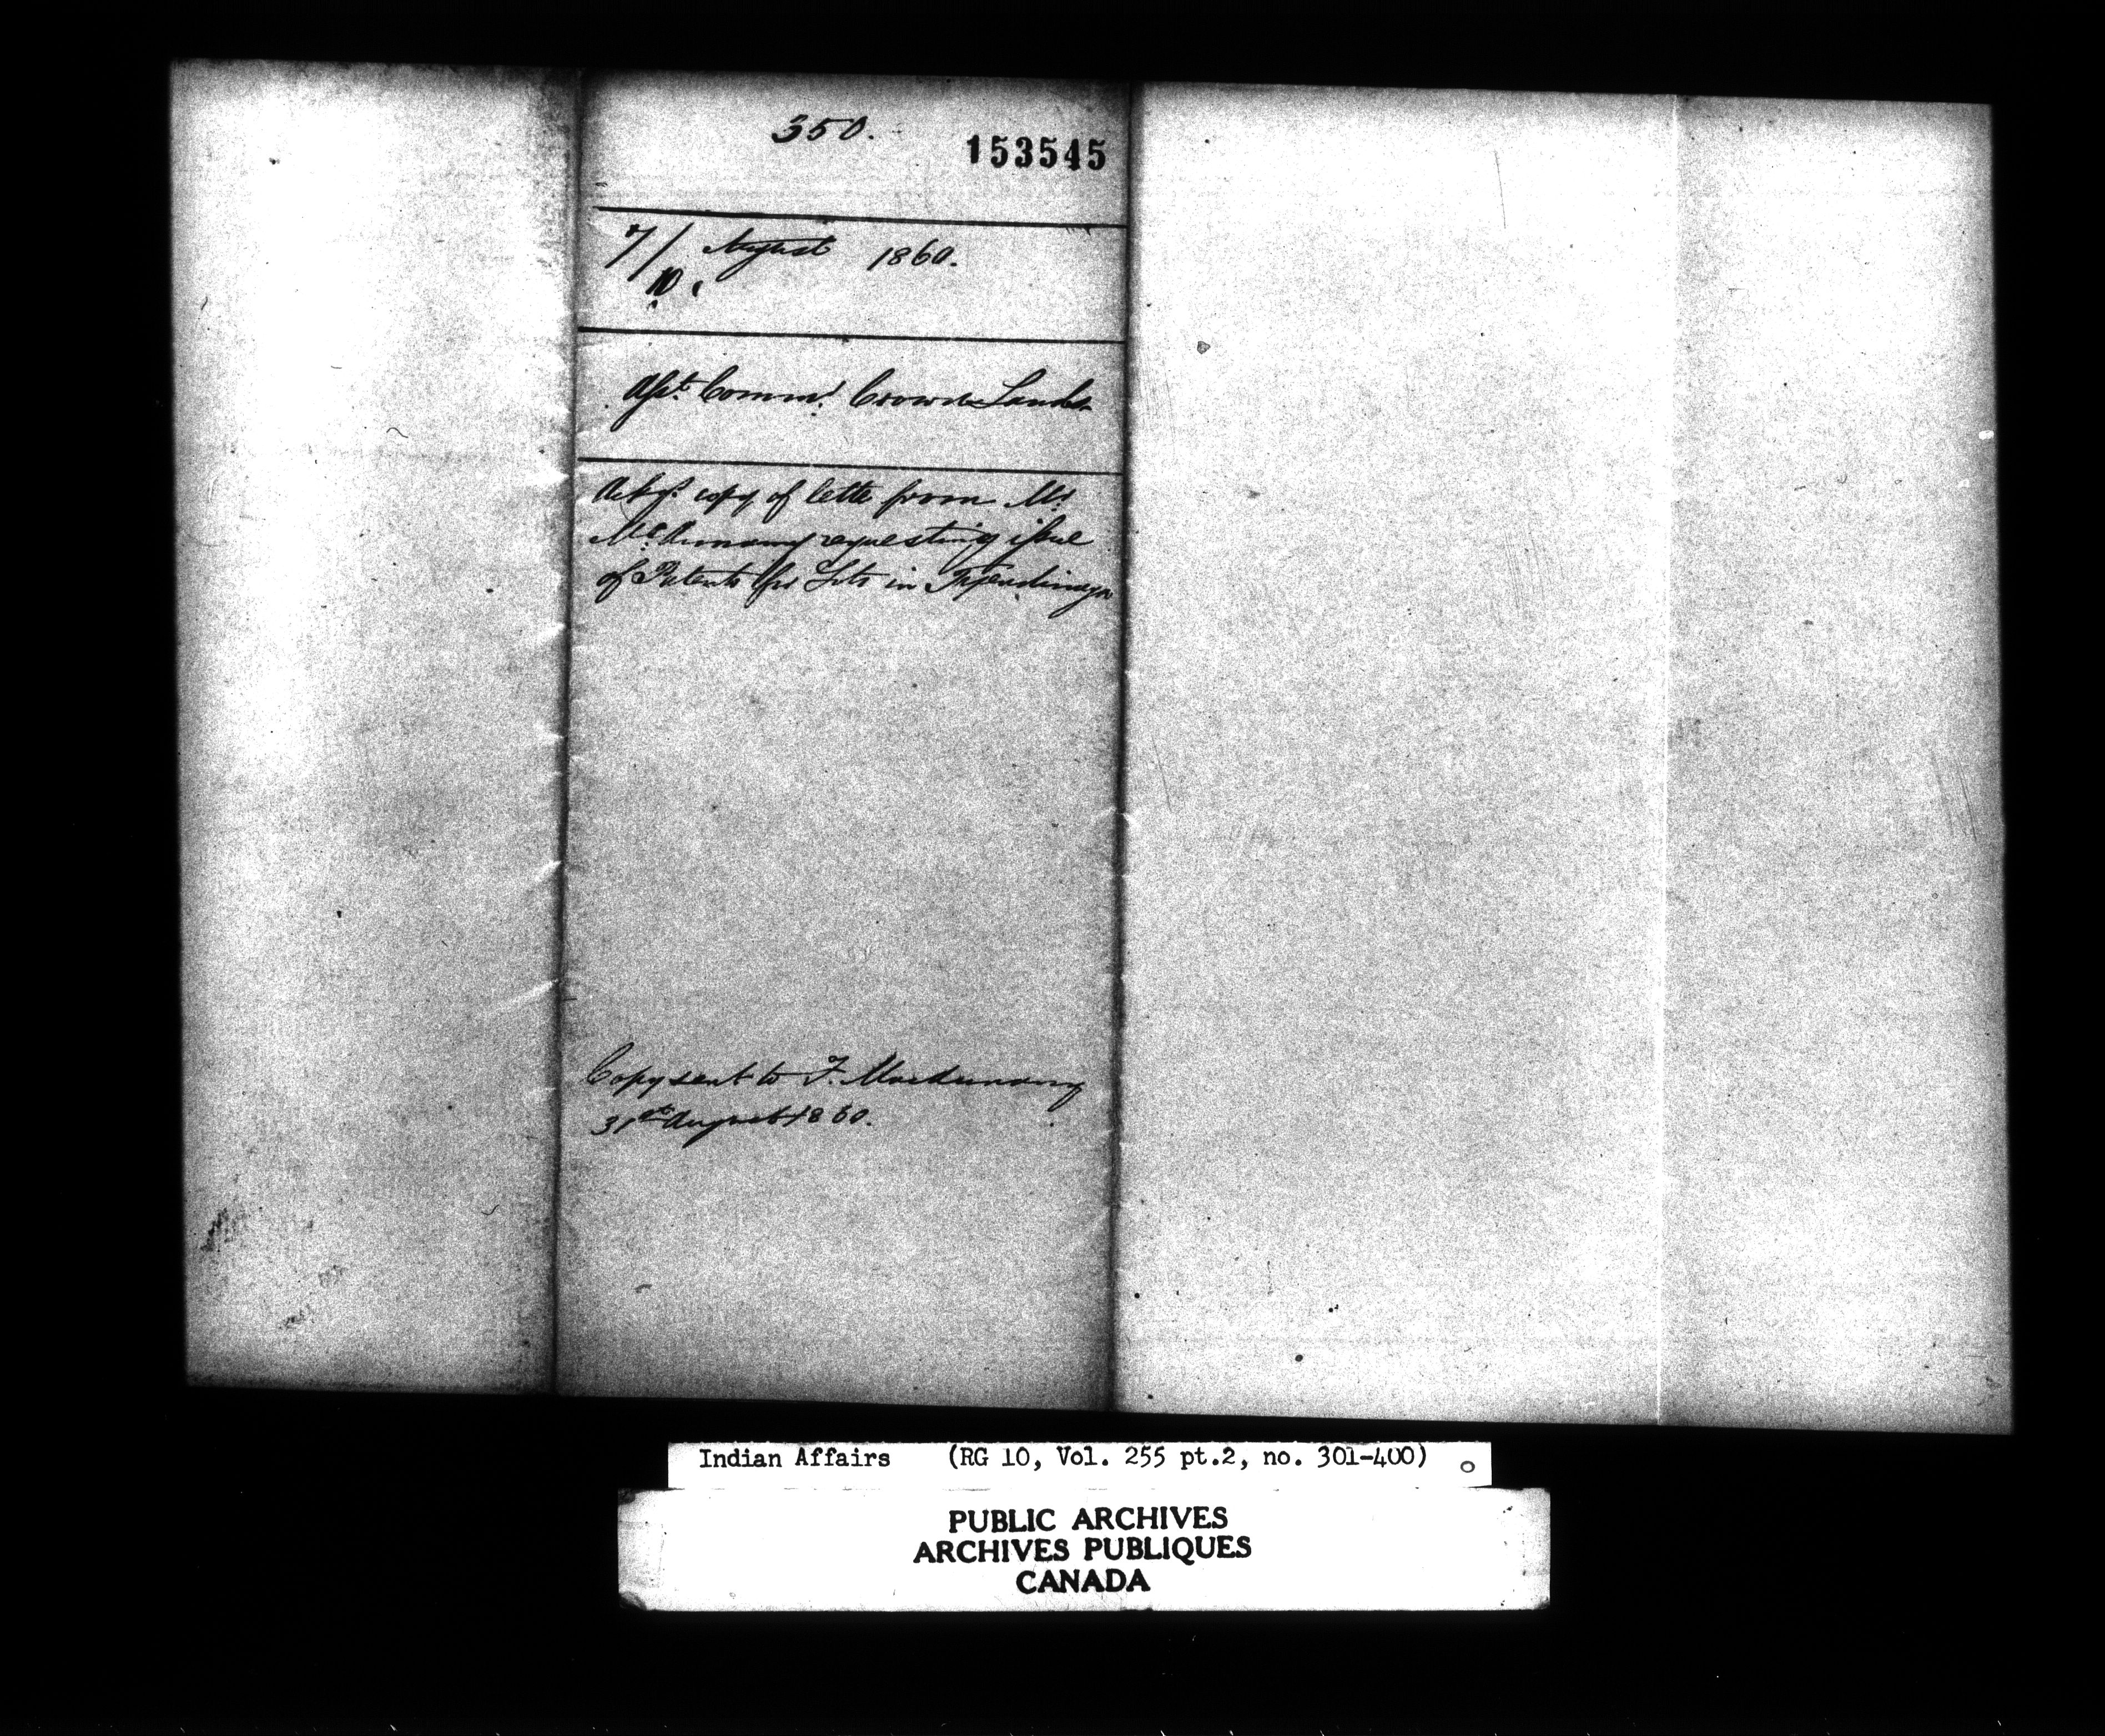 350.
153545
7/ August 1860.
10 "
Asst. Commr. Crown Lands
Ackgs. copy of letter from Mr.
McAnnany requesting issue
of Patents for Lots in Tyendinaga
Copy sent to F. MacAnnany
31st August 1860.
Indian Affairs (RG 10, Vol. 255 pt.2, no. 301-400)
PUBLIC ARCHIVES
ARCHIVES PUBLIQUES
CANADA